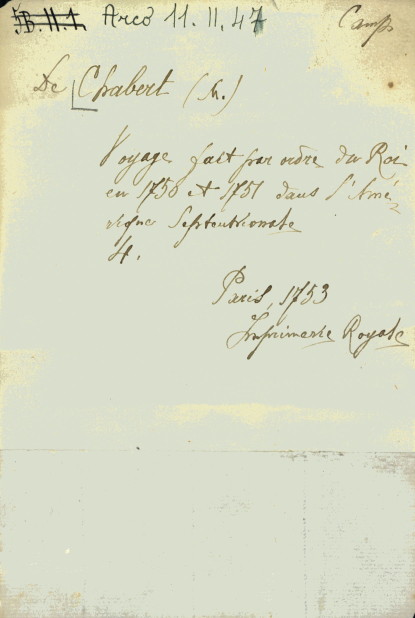 B. II. 1. Arco 11. II. 47
De Chabert (M.)
Voyage fait par ordre du Roi
en 1750 et 1751 dans l'Amé-
rique Septentrionale
4.
Paris, 1753
Imprimerie Royale